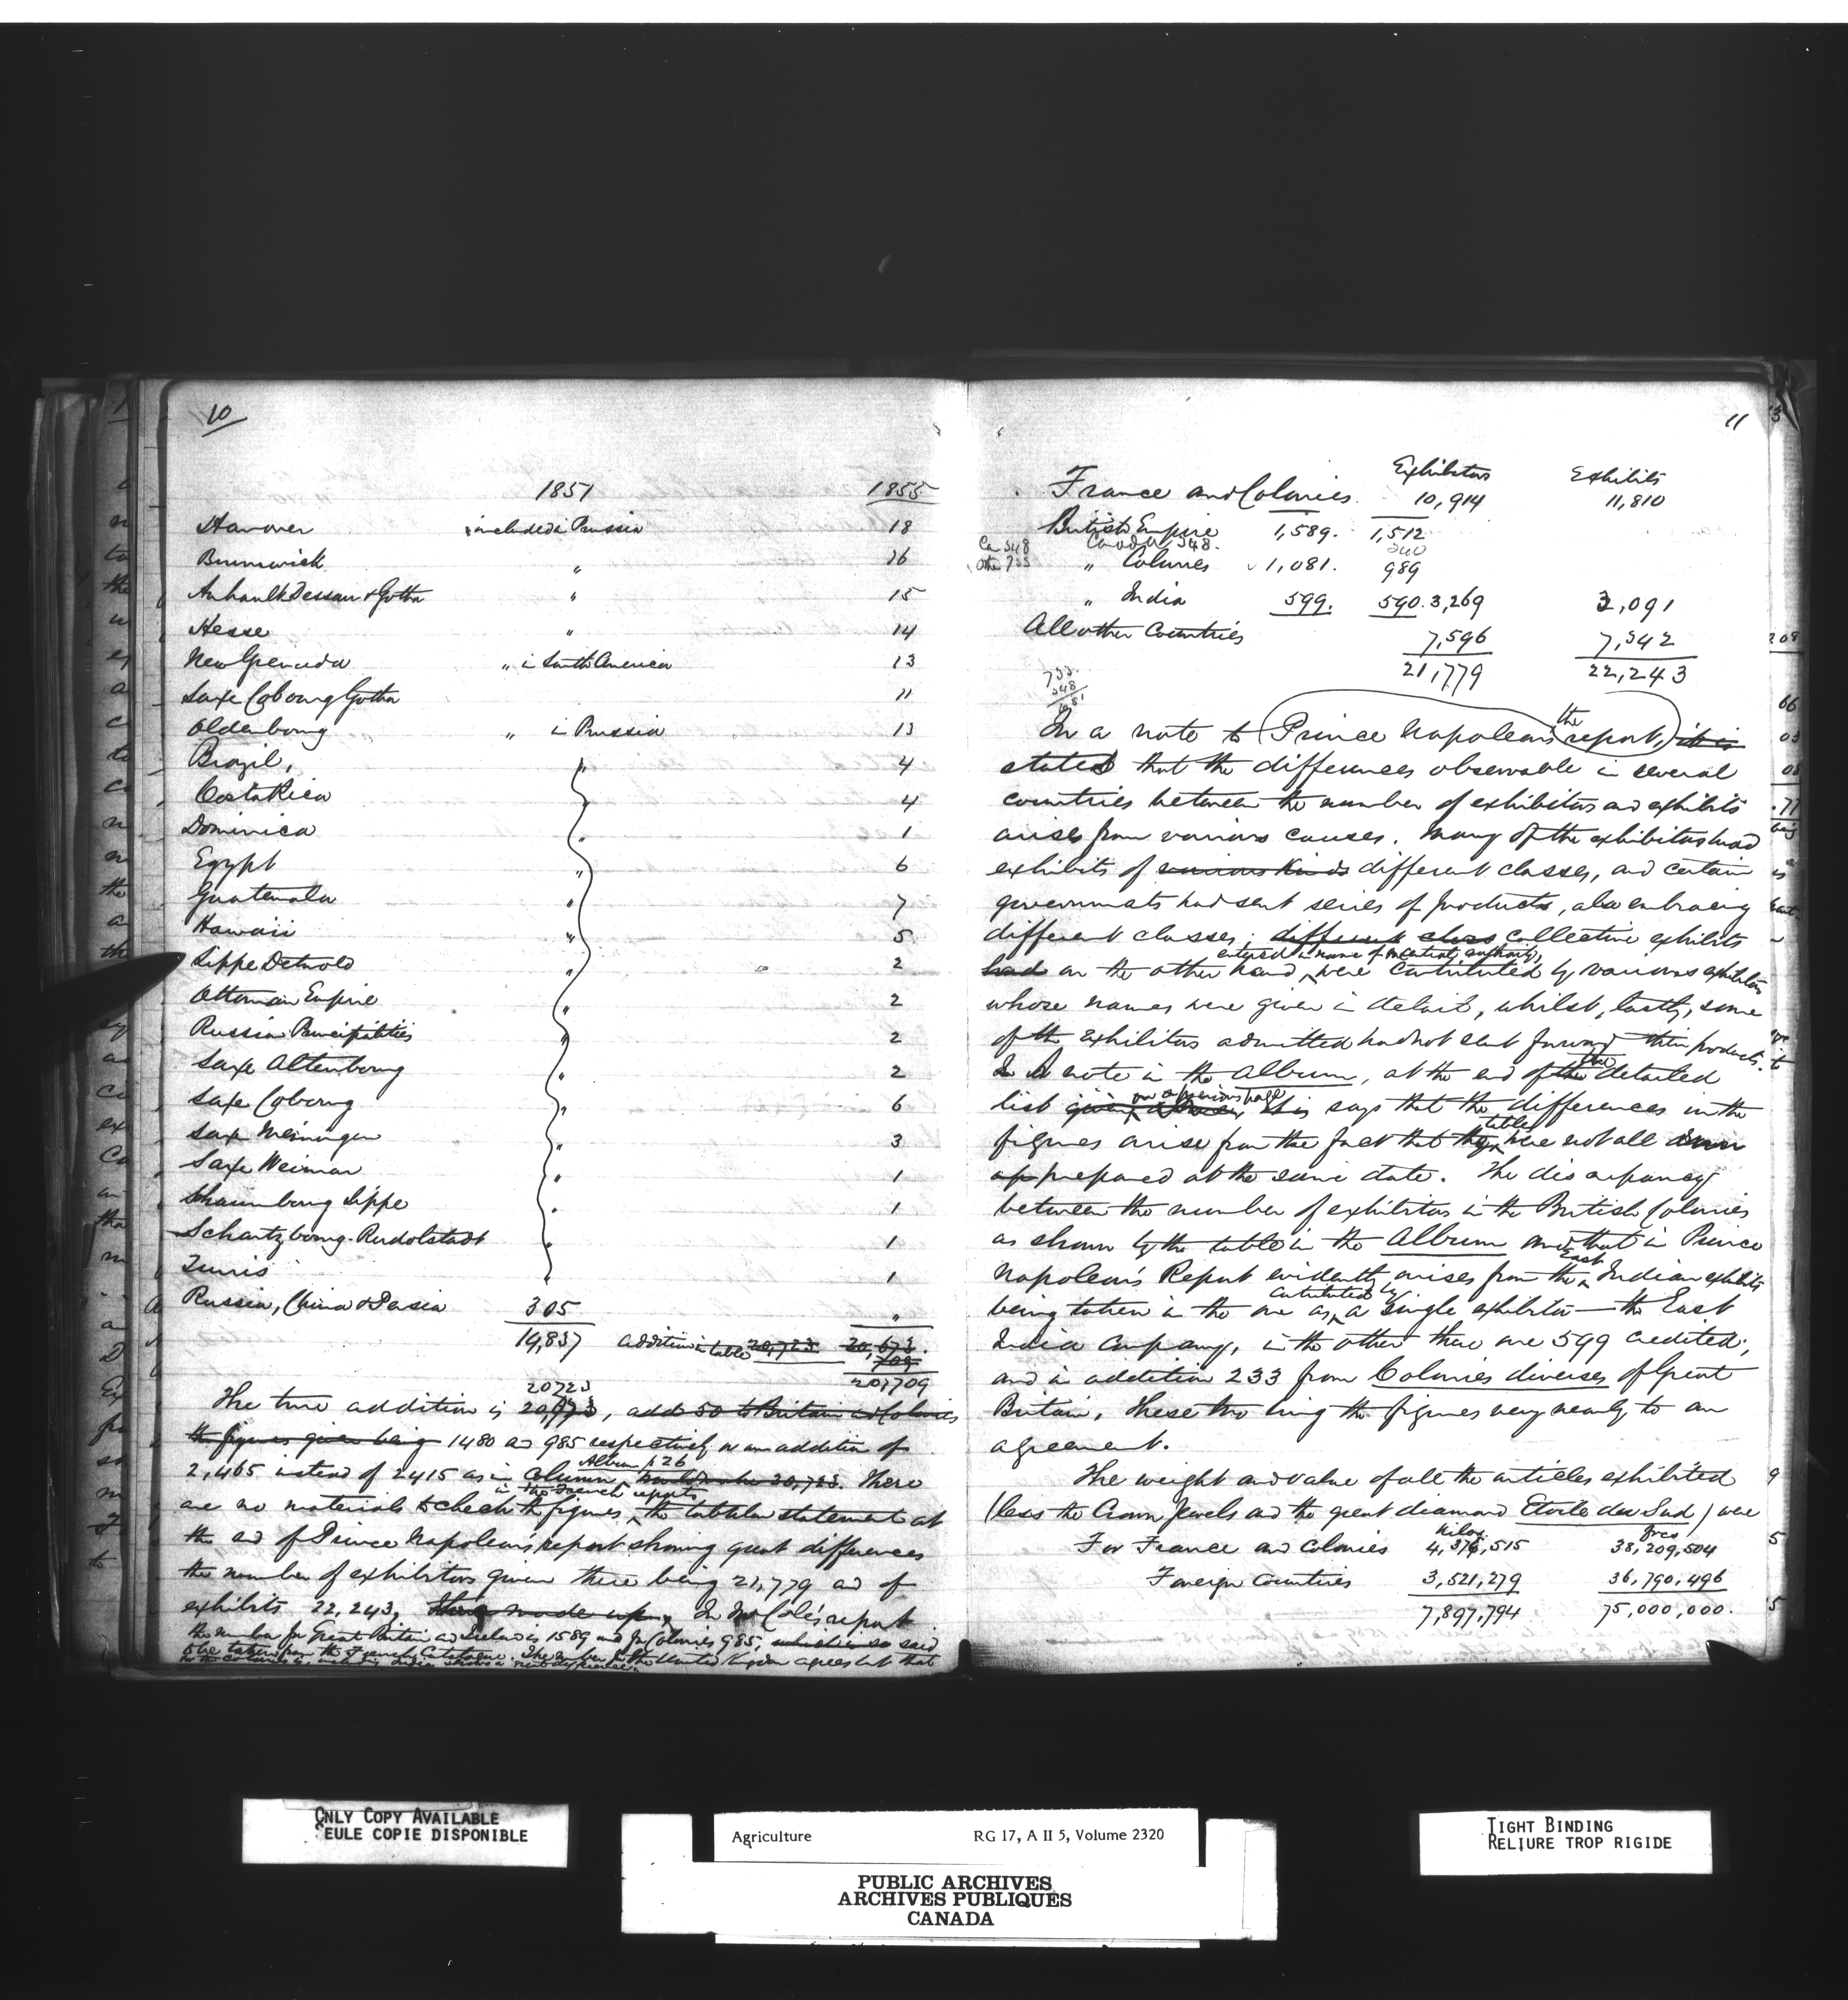 10
1851 1855
Hanover included in Prussia 18
Brunswick " 16
Anhault Dessau & Gotha " 15
Hesse " 14
New Grenada " in South America 13
Saxe Cobourg Gotha 11
Oldenbourg " in Prussia 13
Brazil, " 4
Costa Rica " 4
Dominica " 1
Egypt " 6
Guatemala " 7
Hawaii " 5
Lippe Detmold " 2
Ottoman Empire " 2
Russia Principalities " 2
Saxe Altenbourg " 2
Saxe Cobourg " 6
Saxe Meiningen " 3
Saxe Weimar " 1
Schaumbourg Lippe " 1
Schartzbourg-Rudolstadt " 1
Tunis " 1
Russia, China & Persia 305 "
14,837 addition in table 20,723 20,673
709
20,709
20723
The true addition is 20,723, add 50 to Britain and Colonies
the figures given being 1480 and 985 respectively or an addition of
Album p 26
2,465 instead of 2415 as in column, 20,723. There
in two French reports
are no materials to check the figures, the tabular statement at
the end of Prince Napoleon's report showing great differences
the number of exhibitors given there being 21,779 and of
exhibits 22,243, made up. In Mr Cole's report
the number for Great Britain and Ireland is 1589 and for Colonies 985, which is so said
to be taken from the French Catalogue. The number for the United Kingdom agrees but that
for the Colonies including India
11
Exhibitors Exhibits
France and Colonies 10,914 11,810
British Empire 1,589. 1,512
Canada 348.
Can 348
Other 733
" Colonies 1,081. 989
" India 599. 590. 3,269 3,091
All other Countries 7,596 7,342
21,779 22,243
733
348
1081
the
In a note to Prince Napoleon's report, it is
stated that the differences observable in several
countries between the number of exhibitors and exhibits
arises from various causes. Many of the exhibitors had
exhibits of various kinds different classes, and certain
governments had sent series of products, also embracing
different classes; different class collective exhibits
entered in name of a central authority,
had on the other hand, were contributed by various exhibitors
whose names were given in detail, whilst, lastly, some
of the exhibitors admitted had not sent forward their products.
In A note in the Album, at the end of the detailed
on a previous page
list given above, this says that the differences in the
tables
figures arise from the fact that they were not all drawn
up prepared at the same date. The discrepancy
between the number of exhibitors in the British Colonies
as shown by the table in the Album and that in Prince
East
Napoleon's Report evidently arises from the Indian exhibits
contributed by
being taken in the one as a single exhibitor — the East
India Company, in the other there are 599 credited;
and in addition 233 from Colonies diverses of Great
Britain. These two bring the figures very nearly to an
agreement.
The weight and value of all the articles exhibited
(less the Crown Jewels and the great diamond Etoile du Sud) were
Kilos. frcs
For France and Colonies 4,376,515 38,209,504
Foreign Countries 3,521,279 36,790,496
7,897,794 75,000,000.
ONLY COPY AVAILABLE
SEULE COPIE DISPONIBLE
Agriculture RG 17, A II 5, Volume 2320
PUBLIC ARCHIVES
ARCHIVES PUBLIQUES
CANADA
TIGHT BINDING
RELIURE TROP RIGIDE